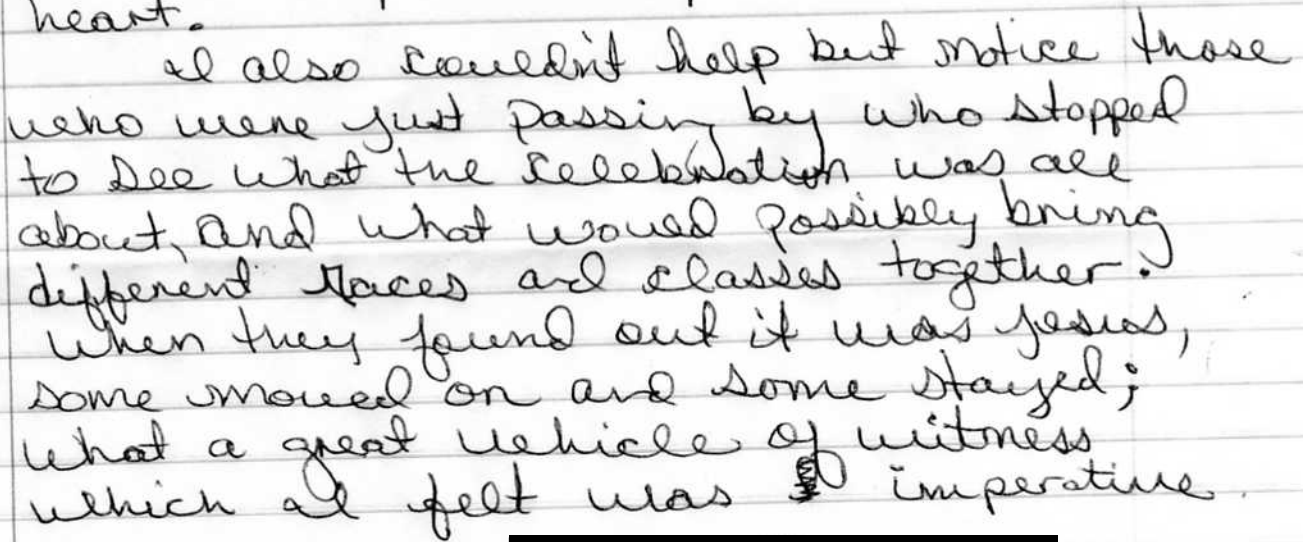 heart.
I also couldn't help but notice those
who were just passing by who stopped
to see what the celebration was all
about, and what would possibly bring
different races and classes together.
When they found out it was Jesus,
some moved on and some stayed;
what a great vehicle of witness
which I felt was imperative